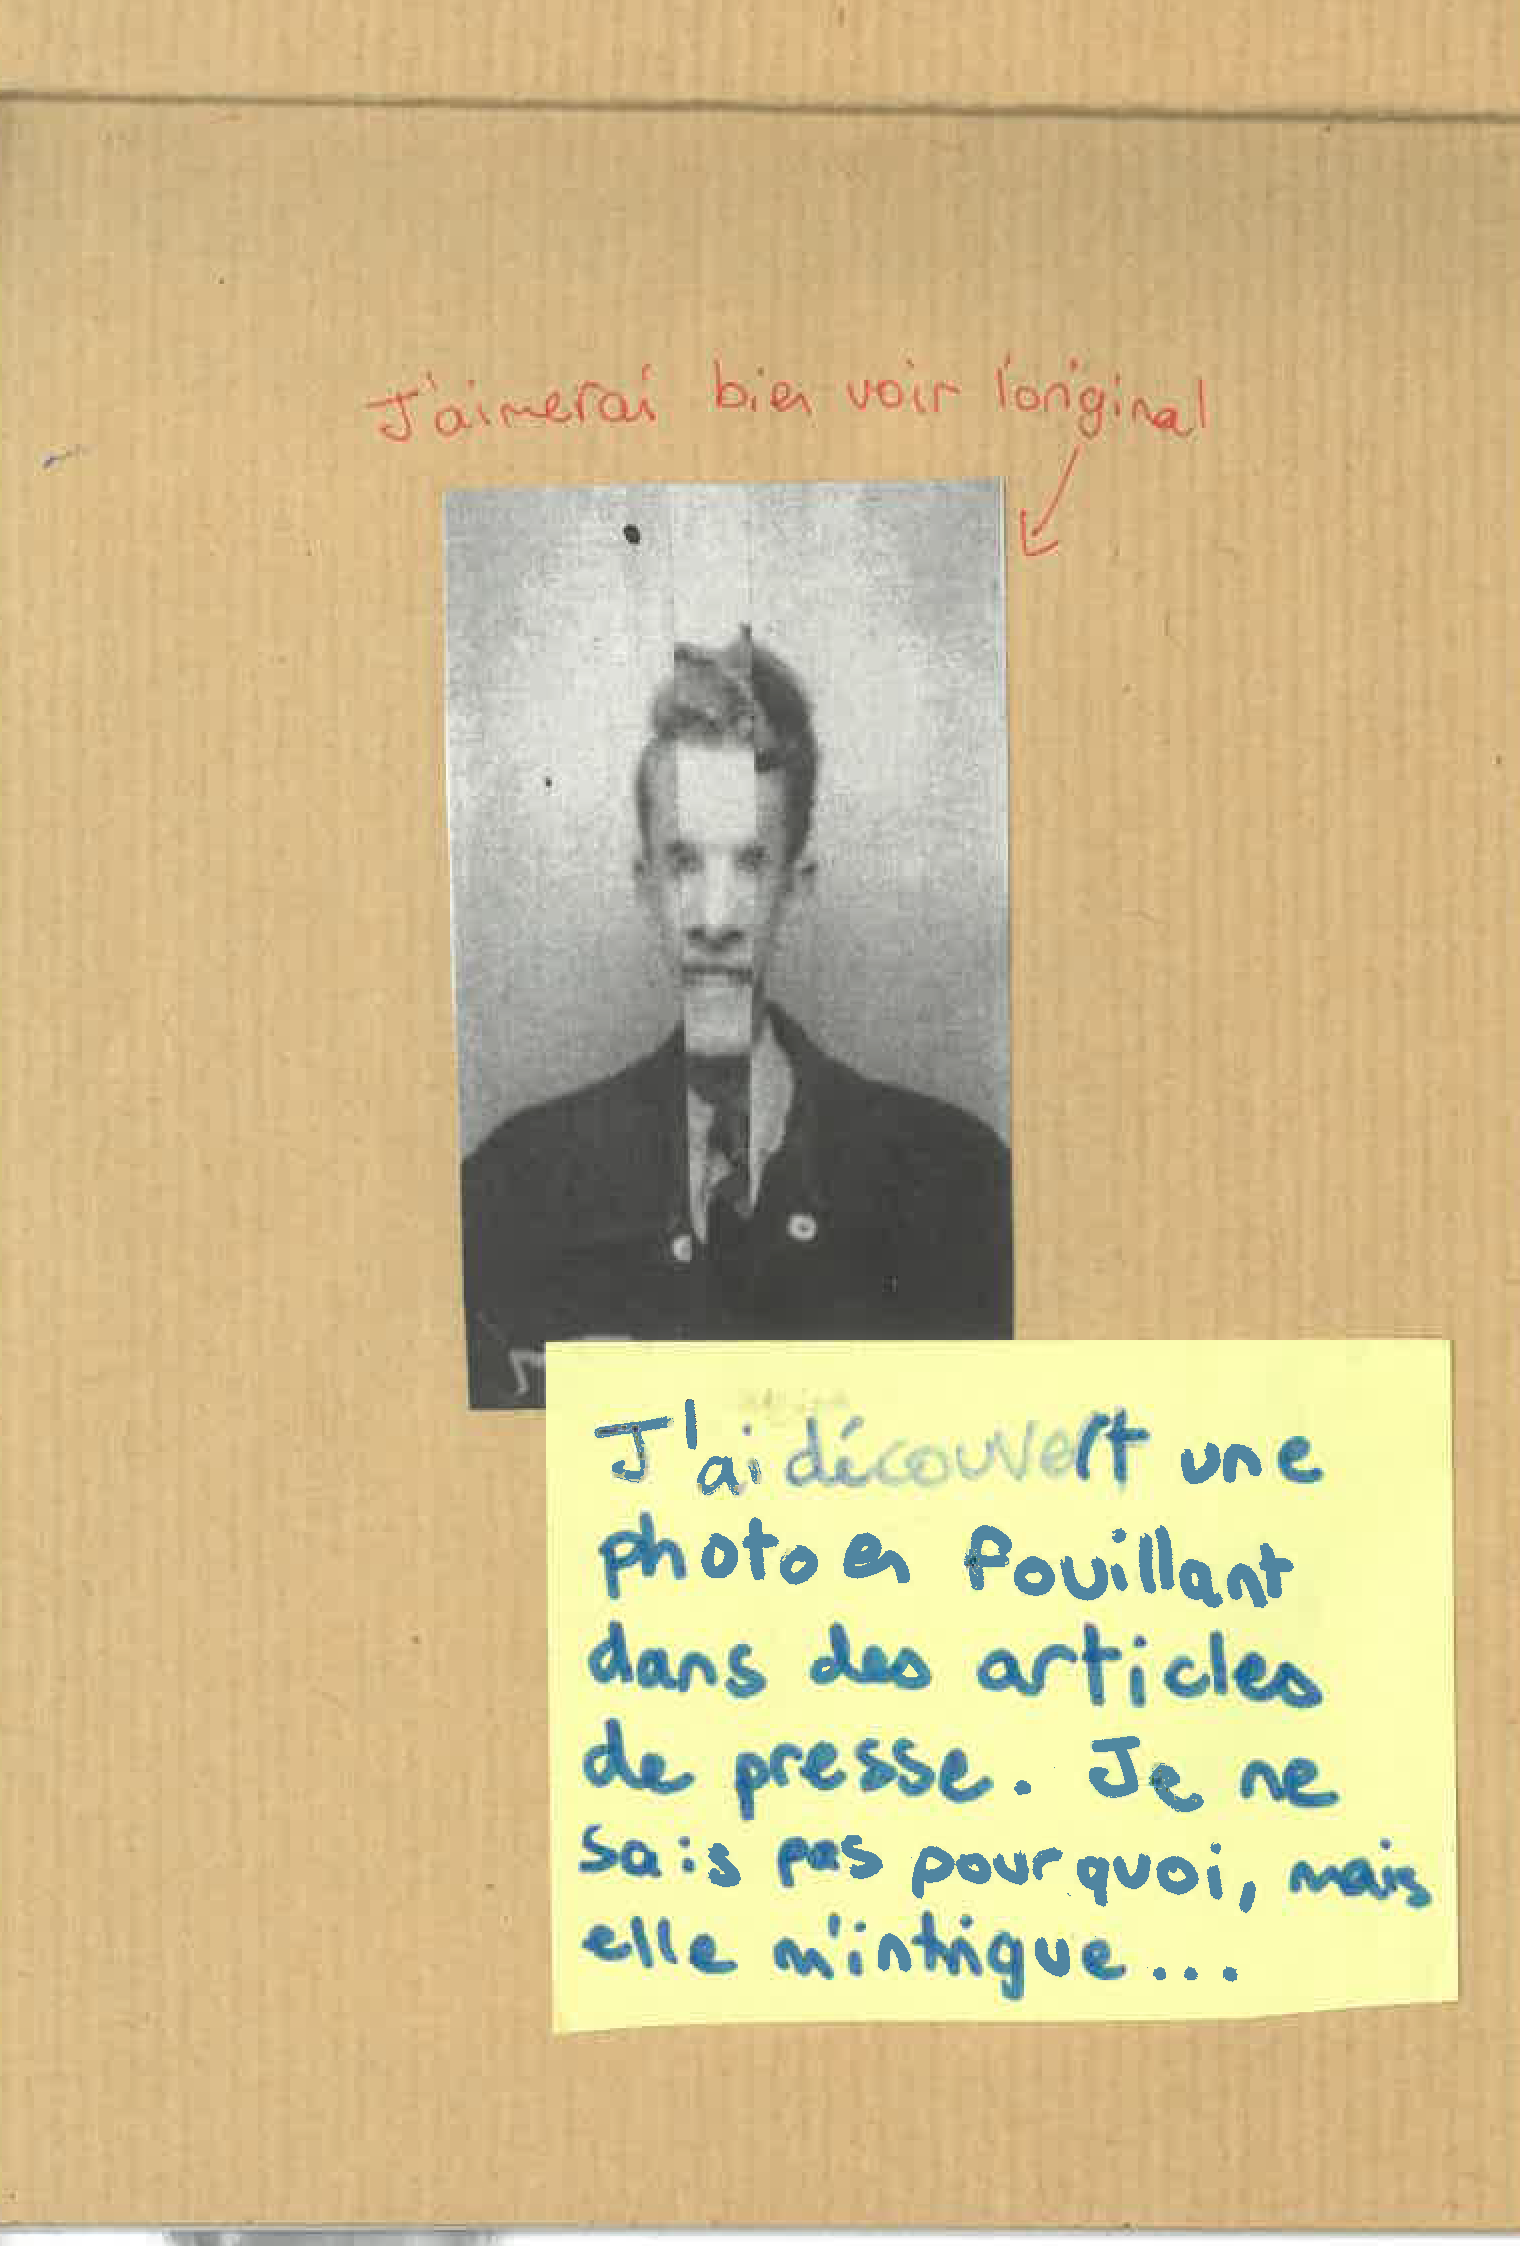 J'aimerai bien voir l'original
J'ai découvert une
photo en fouillant
dans des articles
de presse. Je ne
sais pas pourquoi, mais
elle m'intrigue...